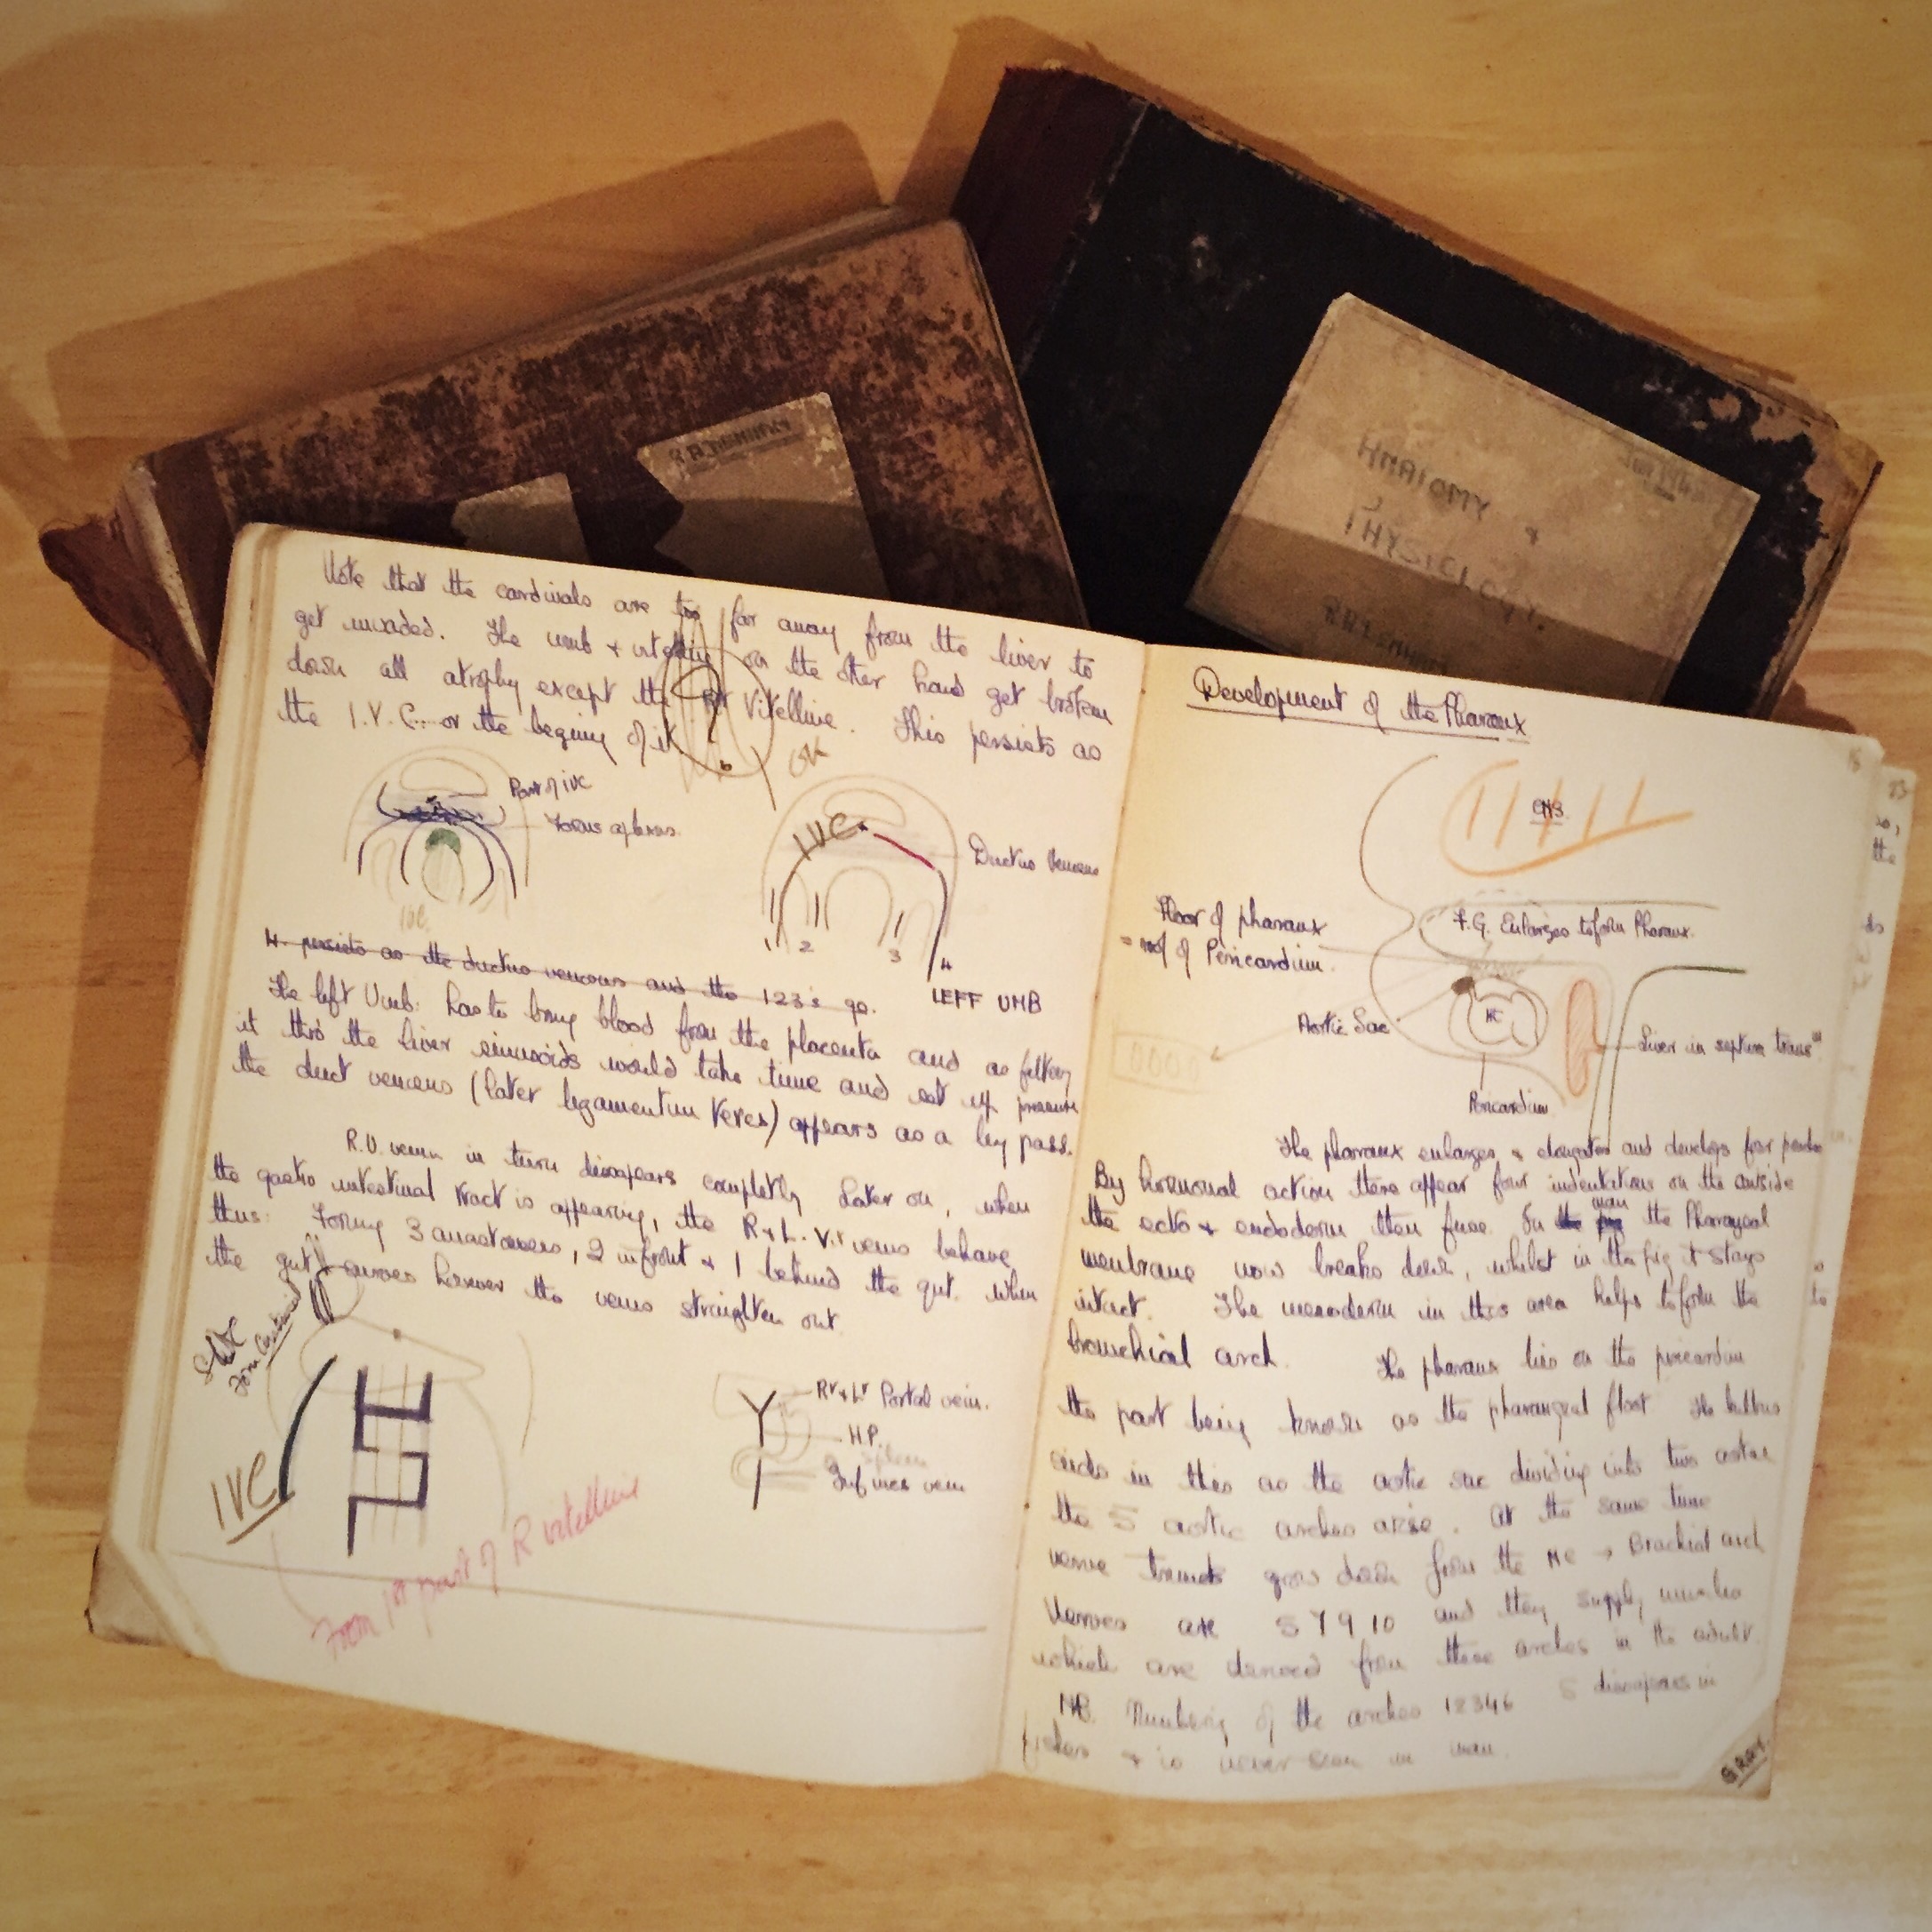 ANATOMY &
PHYSIOLOGY.
Note that the cardinals are too far away from the liver to
get invaded. The umb + vitelline on the other hand get broken
down all atrophy except the Rt Vitelline. This persists as
the I.V.C. or the begining of it
Part of IVC
IVC
Ductus Venosus
1 2 3 4
LEFF UMB
4. persists as the ductus venosus and the 123's go.
The left Umb: has to bring blood from the placenta and as filtering
it thro the liver sinusoids would take time and set up pressure
the duct venosus (later ligamentum Veres) appears as a by pass.
R.U. vein in turn disapears completly Later on, when
the gastro intestinal tract is appearing, the R + L. Vit veins behave
thus: Forming 3 anastomoses, 2 infront + 1 behind the gut. When
the gut curves however the veins straighten out.
SIVC
from Cardinal
IVC
Rt + Lt Portal vein.
H.P.
Spleen
Inf mes vein
From 1st part of R vitelline
Development of the Pharanx
CNS
F.G. Enlarges to form Pharanx.
Floor of pharanx
= roof of Pericardium.
Aortic Sac
HC
Liver in septum trans
Pericardium
The pharanx enlarges + elongates and develops four
By hormonal action there appear four indentations on the outside
the ecto + endoderm then fuse. In the pig man the Pharangeal
membrane now breaks down, whilst in the pig it stays
intact. The mesoderm in this area helps to form the
bronchial arch. The pharanx lies on the pericardium
the part being known as the pharangeal floor. The bulbus
ends in this as the aortic sac dividing into two
the 5 aortic arches arise. At the same time
nerve trunks grow down from the NC → Brachial arch
Nerves are 5 7 9 10 and they supply muscles
which are derived from these arches in the adult.
NB. Numbering of the arches 12346 5 disapears in
fishes + is never seen in man.
GRAY.